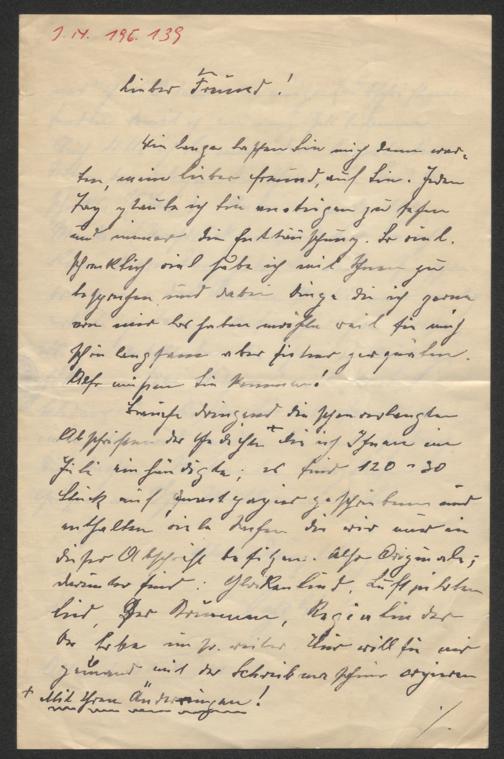 I.N. 196.139
Lieber Freund!
Wie lange lassen Sie mich denn war-
ten, mein lieber Freund, auf Sie. Jeden
Tag glaube ich Sie endlich zu sehen
und immer die Enttäuschung. So viel,
schrecklich viel habe ich mit Ihnen zu
besprechen und dabei Dinge die ich gerne
von mir los haben möchte weil sie mich
schon langsam aber sicher zerquälen.
Also müssen Sie kommen!
Brauche dringend die schon verlangten
Abschriften der Gedichte + die ich Ihnen im
Juli einhändigte; es sind 120-30
Stück auf Quartpapier geschrieben und
enthalten viele Sachen die wir nur in
dieser Abschrift besitzen. Also Originale;
darunter sind: Glockenlied,
lied, Der Brunnen,
u. s. weiter. Nun will sie mir
jemand mit der Schreibmaschine copieren
+ Mit Ihren Änderungen!
./.